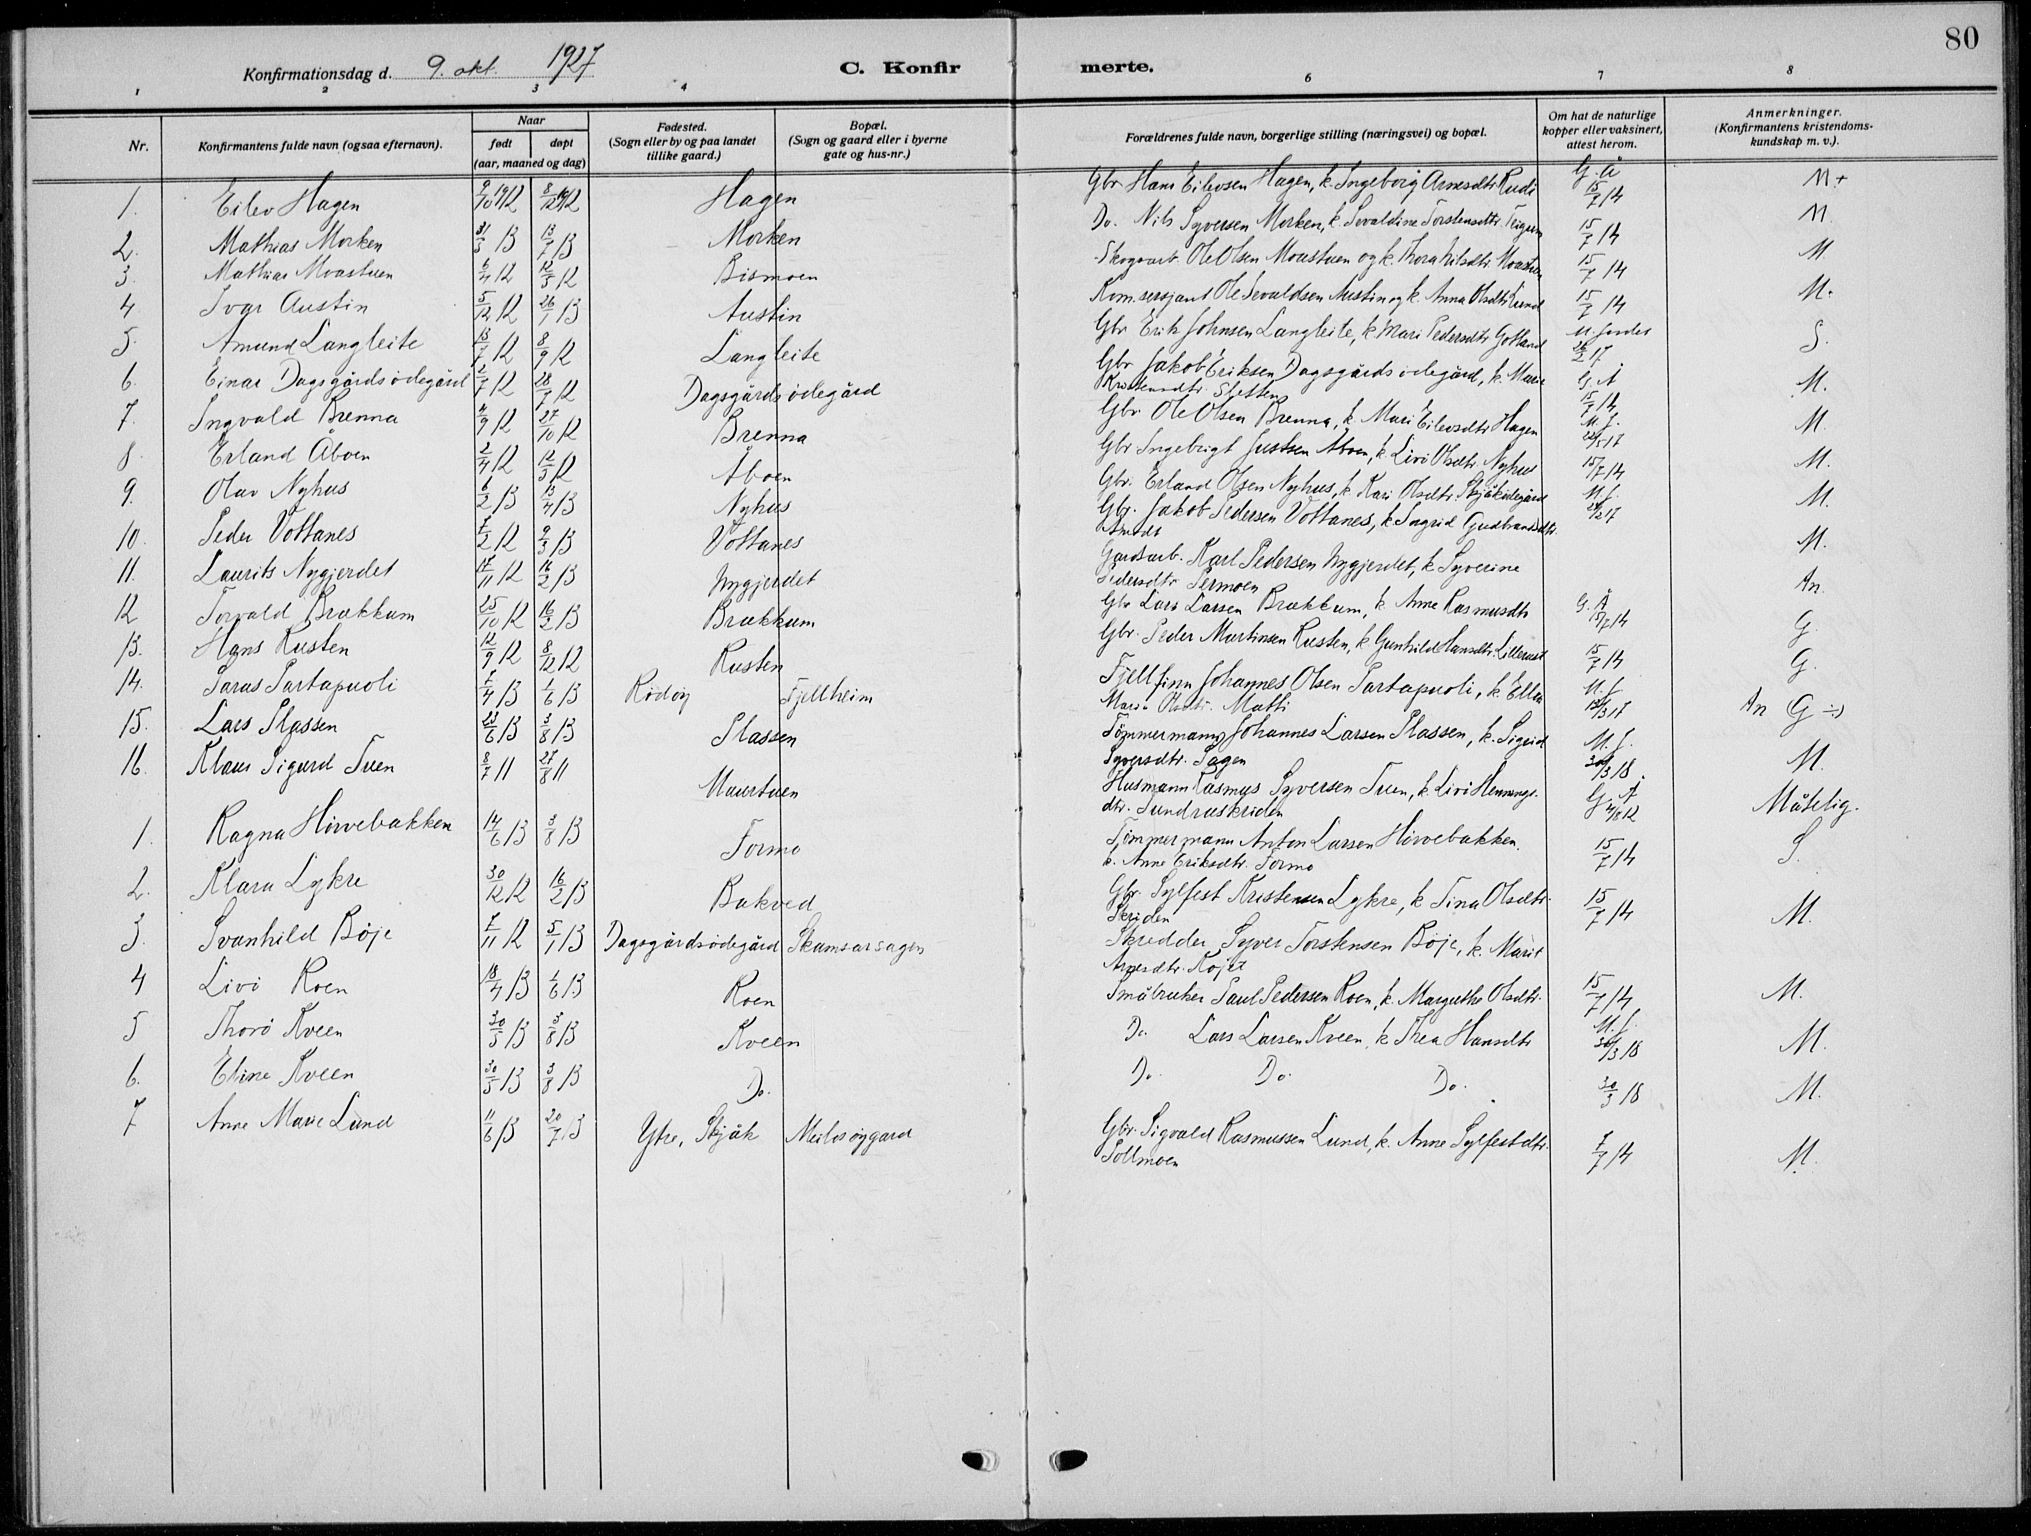 80
Konfirmationsdag d. 9. okt. 1927
C. Konfirmerte.
1 2 3 4 6 7 8
Nr.
Konfirmantens fulde navn (ogsaa efternavn).
Naar
født døpt
(aar, maaned og dag)
Fødested.
(Sogn eller by og paa landet
tillike gaard.)
Bopæl.
(Sogn og gaard eller i byerne
gate og hus-nr.)
Forældrenes fulde navn, borgerlige stilling (næringsvei) og bopæl.
Om hat de naturlige
kopper eller vaksinert,
attest herom.
Anmerkninger.
(Konfirmantens kristendoms-
kundskap m. v.).
1. Eilev Hagen 9/10 1912 8/12 1912 Hagen Gbr. Hans Eilevsen Hagen, k. Ingeborg Arnesdtr. Rudi G. Å 15/7 14 M+
2. Mathias Morken 31/3 13 13/7 13 Morken Do. Nils Syversen Morken, k. Sevaldine Torstensdtr. 15/7 14 M.
3. Mathias Moastuen 6/4 12 12/5 12 Bismoen Skogsarb. Ole Olsen Moastuen og k. Thora Nilsdtr. Moastuen 15/7 14 M.
4 Ivar Austin 5/12 12 26/1 13 Austin Kom.sersjant Ole Sevaldsen Austin og k. Anna Olsdtr. Lund 15/7 14 M.
5. Amund Langleite 13/7 12 8/9 12 Langleite Gbr. Erik Johnsen Langleite, k. Mari Pedersdtr. Gottand M. Jordet 26/2 17 S.
6. Einar Dagsgårdsødegård 2/7 12 28/7 12 Dagsgårdsødegård Gbr. Jakob Eriksen Dagsgårdsødegård, k. Marie
Kristensdtr. Sletten G. Å 15/7 14 M.
7. Ingvald Brenna 4/9 12 27/10 12 Brenna Gbr. Ole Olsen Brenna, k. Mari Eilevsdtr. Hagen M. J. 17 M.
8. Erland Åboen 2/4 12 12/5 12 Åboen Gbr. Ingebrigt Justsen Åboen, k. Livi Olsdtr. Nyhus 15/7 14 M.
9. Olav Nyhus 6/2 13 13/4 13 Nyhus Gbr. Erland Olsen Nyhus, k. Kari Olsdtr. Skjåkødegård M. J. 17 M.
10. Peder Vottanes 7/2 12 9/3 13 Vottanes Gbr. Jakob Pedersen Vottanes, k. Ingrid Gudbrandsdtr.
Åmodt M.
11. Laurits Nygjerdet 17/11 12 16/2 13 Nygjerdet Gardsarb. Karl Pedersen Nygjerdet, k. Syverine
Pedersdtr. Sermoen An.
12 Torvald Brækkum 25/10 12 16/2 13 Brækkum Gbr. Lars Larsen Brækkum, k. Anne Rasmusdtr. G. Å 15/7 14 G.
13. Hans Rusten 12/9 12 8/12 12 Rusten Gbr. Peder Martinsen Rusten, k. Gunhild Hansdtr. Lillerust 15/7 14 G.
14. Partapuoli 1/4 13 1/6 13 Rödöy Fjellheim Fjellfinn Johannes Olsen Partapuoli, k. Ella
Maria Olsdtr. Matti M. J. 17 An G
15. Lars Plassen 23/6 13 3/8 13 Plassen Tömmermann Johannes Larsen Plassen, k. Sigrid
Syversdtr. Sagen M. J. 30/3 18 M.
16. Klaus Sigurd Tuen 8/7 11 27/8 11 Muurtuen Husmann Rasmus Syversen Tuen, k. Livi Hennings-
dtr. Sundruskriden G. Å 12 Måtelig.
1. Ragna Hirvebakken 14/6 13 3/8 13 Formo Tömmermann Anton Larsen Hirvebakken,
k. Anne Eriksdtr. Formo 15/7 14 S.
2. Klara Lykre 30/12 12 16/2 13 Bakved Gbr. Sylfest Kristensen Lykre, k. Tina Olsdtr.
Skriden 15/7 14 M.
3. Svanhild Böje 7/11 12 5/1 13 Dagsgårdsødegård Skamsarsagen Skredder Syver Torstensen Böje, k. Marit
Arnesdtr. Röjet
4 Livi Roen 18/4 13 1/6 13 Roen Småbruker Paul Pedersen Roen, k. Margrethe Olsdtr. 15/7 14 M.
5 Thora Kveen 30/5 13 3/8 13 Kveen Do. Lars Larsen Kveen, k. Thea Hansdtr. M. J. 30/3 18 M.
6. Eline Kveen 30/5 13 3/8 13 Do. Do. Do. Do. 30/3 18 M.
7 Anne Marie Lund 11/6 13 20/7 13 Ytre, Skjåk Meilosöygard Gbr. Sigvald Rasmussen Lund, k. Anne Sylfestdtr.
Sollmoen 7/7 14 M.